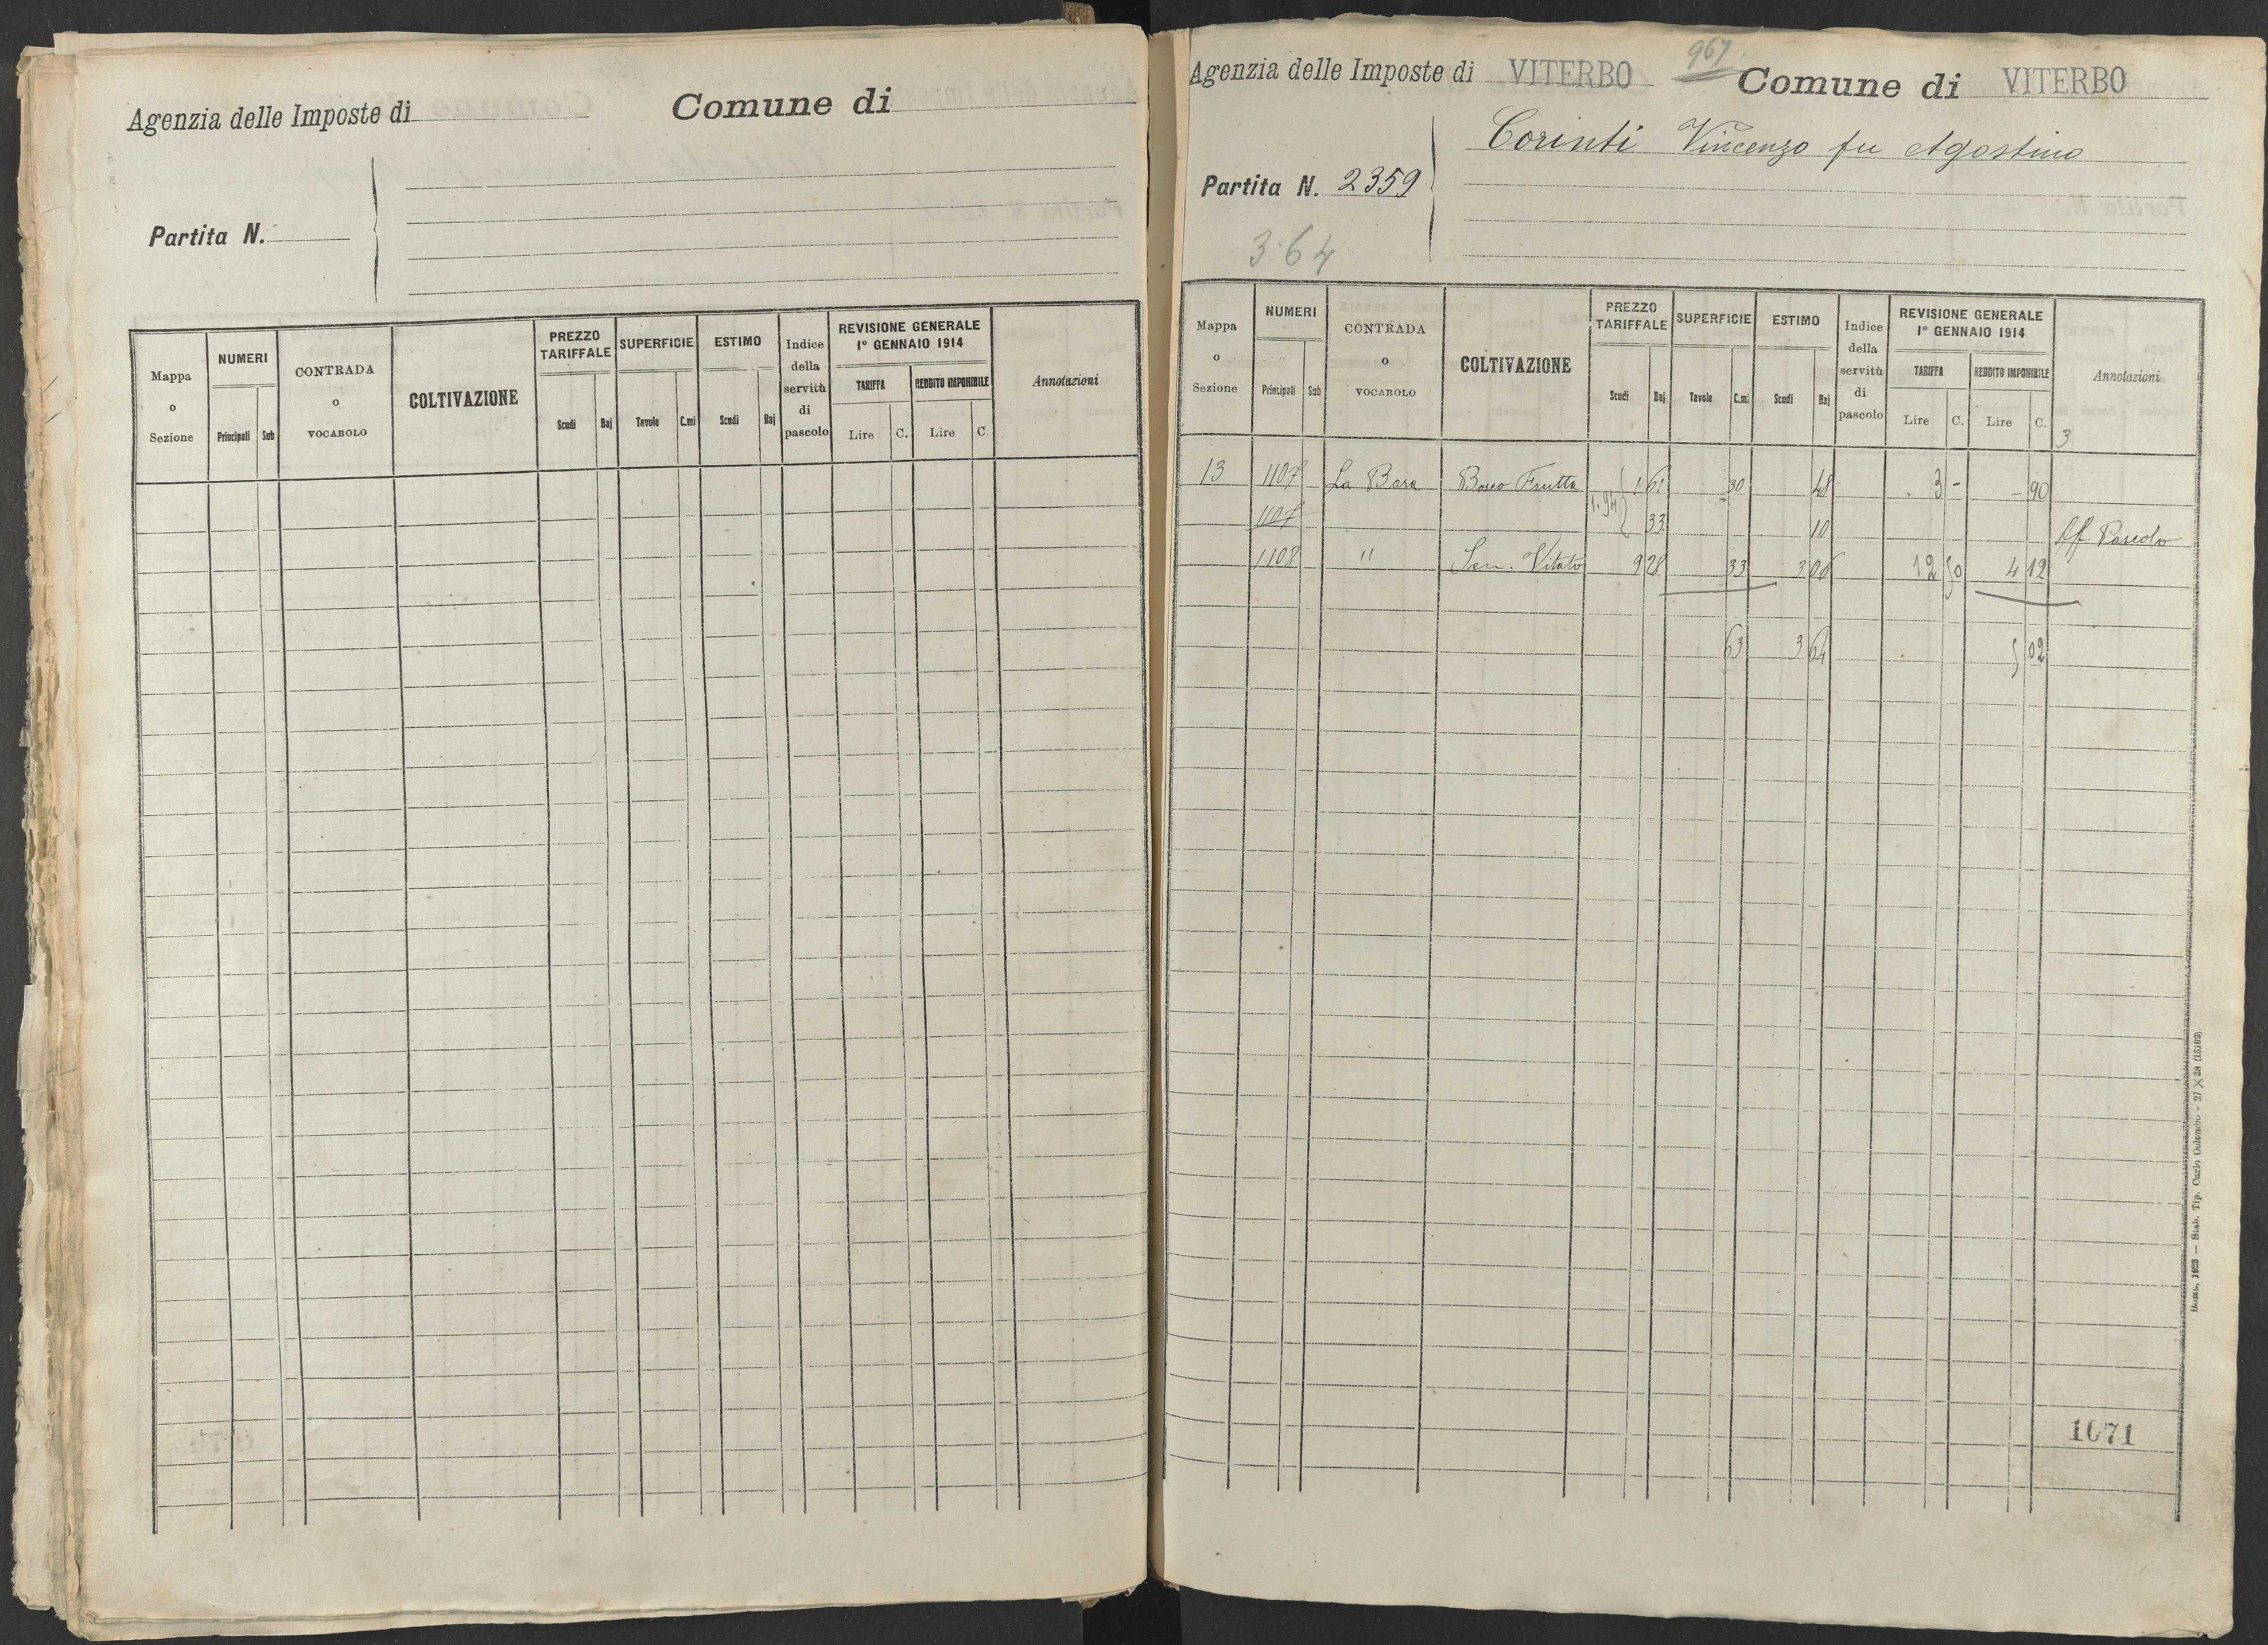 Agenzia delle Imposte di Comune di
Partita N.
Mappa o Sezione
NUMERI
Principali Sub
CONTRADA o VOCABOLO
COLTIVAZIONE
PREZZO TARIFFALE
Scudi Baj
SUPERFICIE
Tavole C.mi
ESTIMO
Scudi Baj
Indice della servitù di pascolo
REVISIONE GENERALE
1º GENNAIO 1914
TARIFFA REDDITO IMPONIBILE
Lire C. Lire C.
Annotazioni
967
Agenzia delle Imposte di VITERBO Comune di VITERBO
Corinti Vincenzo fu Agostino
Partita N. 2359
3.64
Mappa o Sezione
NUMERI
Principali Sub
CONTRADA o VOCABOLO
COLTIVAZIONE
PREZZO TARIFFALE
Scudi Baj
SUPERFICIE
Tavole C.mi
ESTIMO
Scudi Baj
Indice della servitù di pascolo
REVISIONE GENERALE
1º GENNAIO 1914
TARIFFA REDDITO IMPONIBILE
Lire C. Lire C.
Annotazioni
3
13 1107 La Bara Bosco Frutta 1 61 30 48 3 - - 90
1107 1.94 33 10 Aff Pascolo
1108 " Sem. Vitato 9 28 33 3 06 12 50 4 12
63 3 64 5 02
1071
Roma, 1923 — Stab. Tip. Carlo Colombo - 27 X 28 (13103).